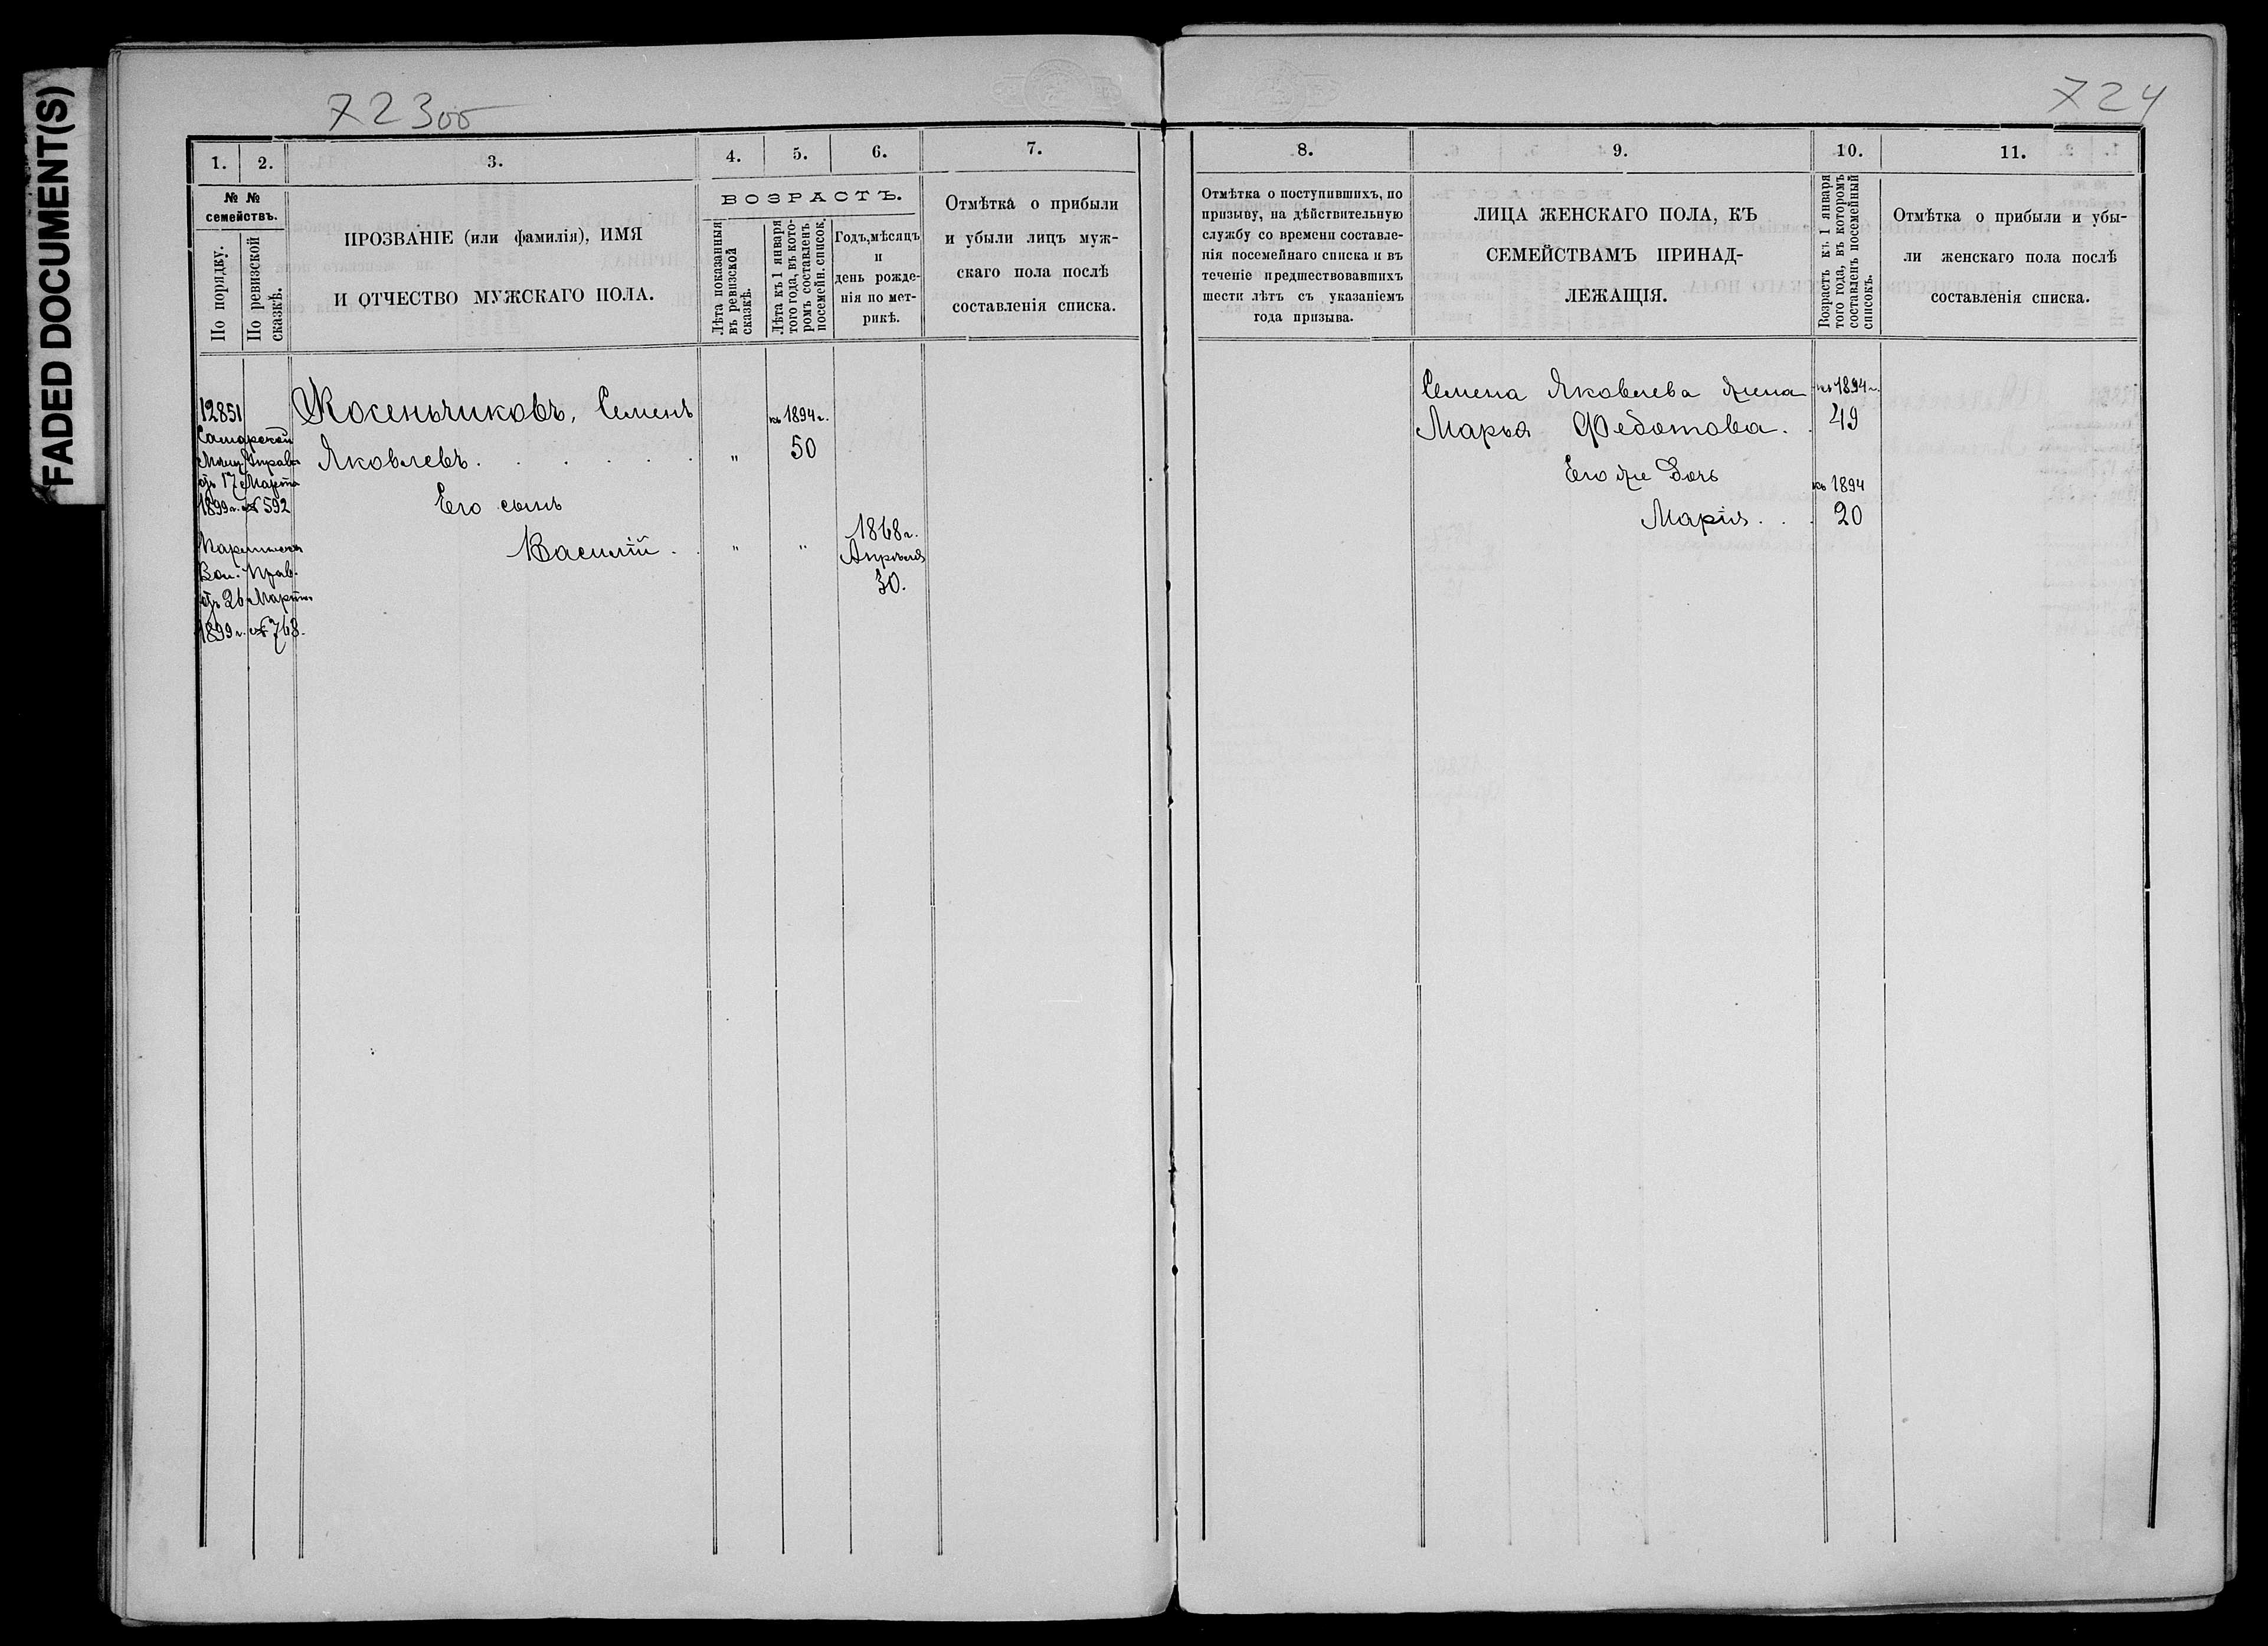 FADED DOCUMENT(S)
723об
724
1.
2.
3.
4.
5.
6.
7.
№ №
семействъ.
По порядку.
По ревизской
сказкѣ.
ПРОЗВАНІЕ (или фамилія), ИМЯ
И ОТЧЕСТВО МУЖСКАГО ПОЛА.
ВОЗРАСТЪ.
Лѣта показанныя
въ ревизской
сказкѣ.
Лѣта къ 1 января
того года, въ кото-
ромъ составленъ
посемейн. список.
Годъ, мѣсяцъ
и
день рожде-
нія по мет-
рикѣ.
Отмѣтка о прибыли
и убыли лицъ муж-
скаго пола послѣ
составленія списка.
12851
Самарской
Мѣщ. Управы
отъ 17 Марта
1899 г. № 592
Вол. Прав.
отъ 26 Марта
1899 г. № 768.
Косеньчиковъ, Семенъ
Яковлевъ. . . . . . „
къ 1894 г.
50
Его сынъ
Василій . . „ „
1868 г.
Апрѣля
30.
8.
9.
10.
11.
Отмѣтка о поступившихъ, по
призыву, на дѣйствительную
службу со времени составле-
нія посемейнаго списка и въ
теченіе предшествовавшихъ
шести лѣтъ съ указаніемъ
года призыва.
ЛИЦА ЖЕНСКАГО ПОЛА, КЪ
СЕМЕЙСТВАМЪ ПРИНАД-
ЛЕЖАЩІЯ.
Возрастъ къ 1 января
того года, въ которомъ
составленъ посемейный
списокъ.
Отмѣтка о прибыли и убы-
ли женскаго пола послѣ
составленія списка.
Семена Яковлева жена
къ 1894 г.
Марья Федотова. . 49
Его же дочь
къ 1894
Марія. . . 20